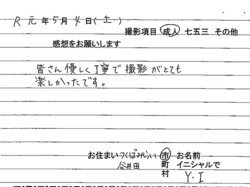 R元年5月4日(土)
撮影項目 成人 七五三 その他
感想をお願いします
皆さん優しく丁寧で撮影がとても
楽しかったです。
お住まい つくばみらい 市 お名前
谷井田 町 イニシャルで
村 Y.I